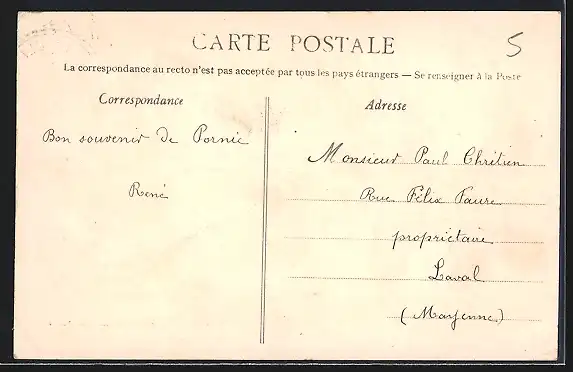 CARTE POSTALE
5
La correspondance au recto n'est pas acceptée par tous les pays étrangers — Se renseigner à la Poste
Correspondance
Bon souvenir de Pornic
René
Adresse
Monsieur Paul Chrétien
Rue Félix Faure
propriétaire
Laval
(Mayenne)